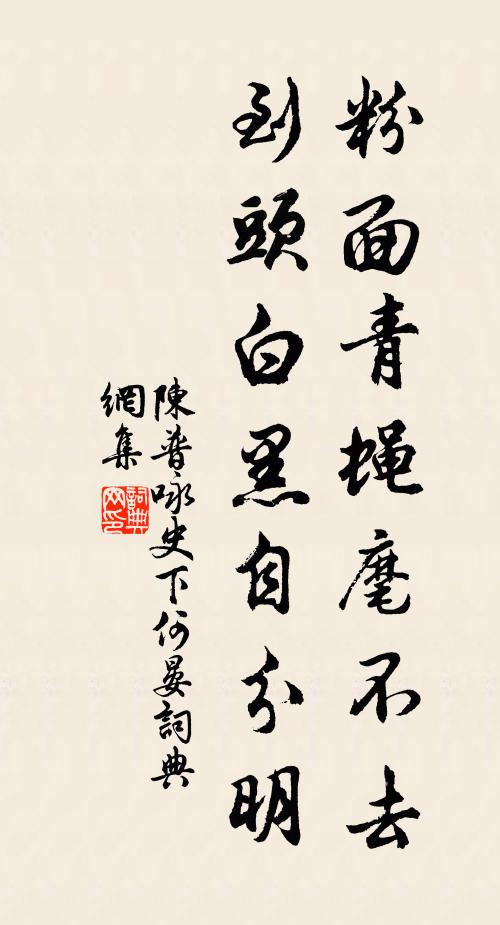 粉面青蝇麾不去
到頭白黑自分明
陳普咏史下何晏詞典
網集
詞典
网印